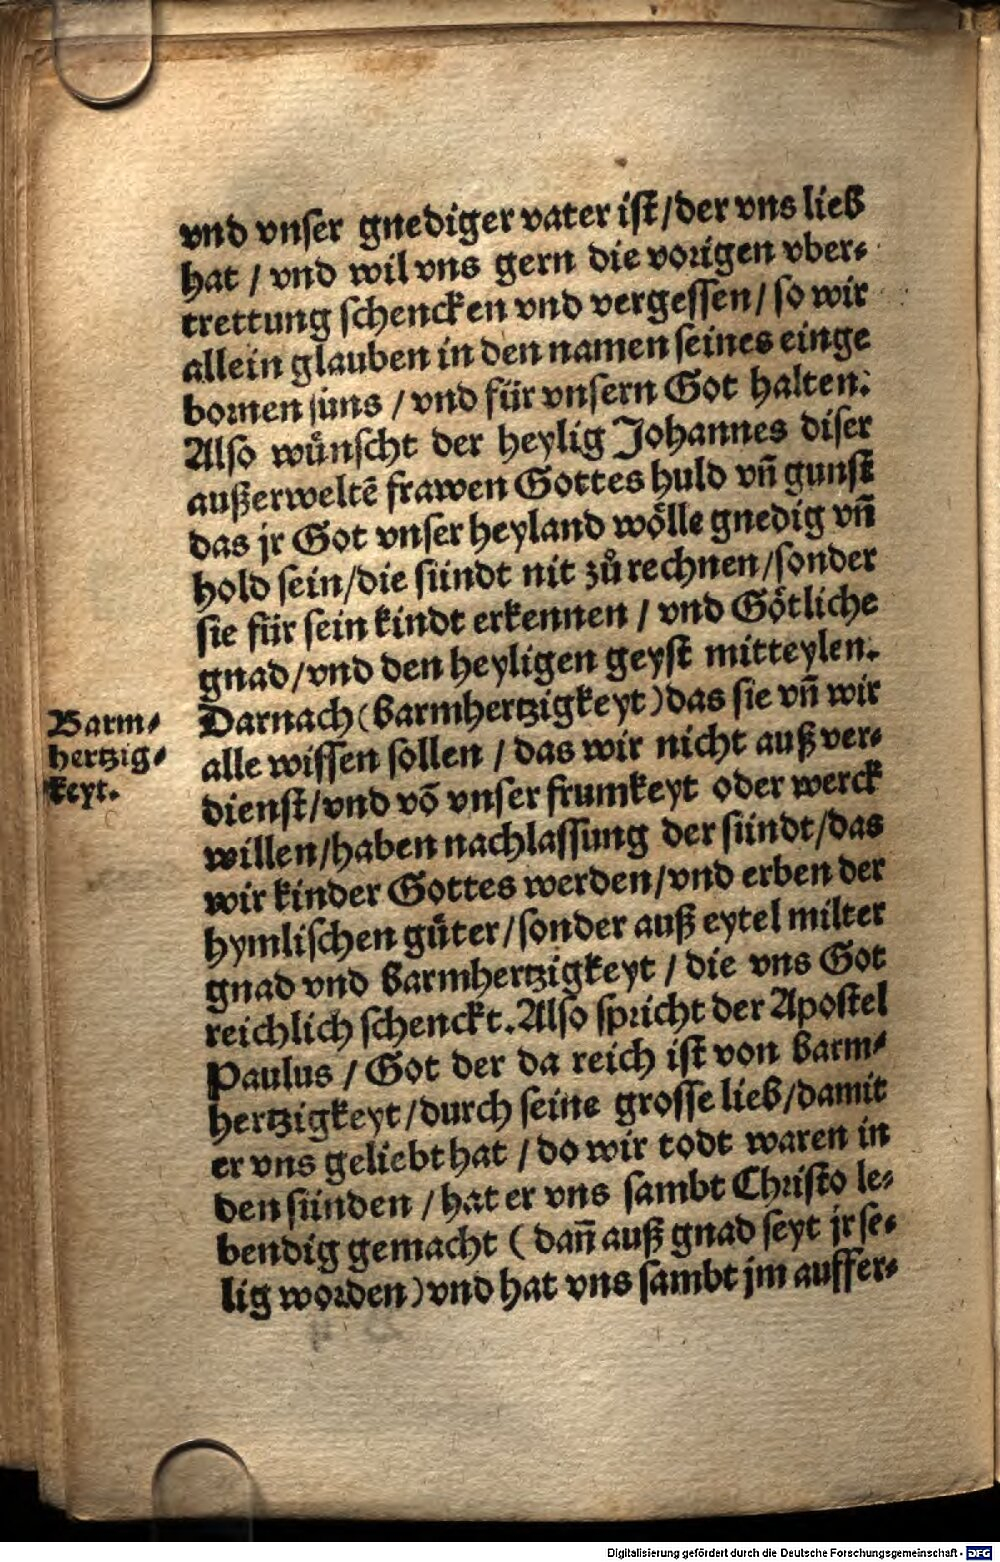 vnd vnser gnediger vater ist/der vns lieb
hat / vnd wil vns gern die vorigen vber⸗
trettung schencken vnd vergessen/ so wir
allein glauben in den namen seines einge
bornen suns / vnd für vnsern Got halten.
Also wünscht der heylig Johannes diser
außerweltē frawen Gottes huld vñ gunst
das jr Got vnser heyland wölle gnedig vñ
hold sein/die sündt nit zů rechnen/sonder
sie für sein kindt erkennen / vnd Götliche
gnad/vnd den heyligen geyst mitteylen.
Barm⸗
hertzig⸗
keyt.
Darnach (barmhertzigkeyt) das sie vñ wir
alle wissen sollen / das wir nicht auß ver⸗
dienst/vnd vō vnser frumkeyt oder werck
willen/haben nachlassung der sündt/das
wir kinder Gottes werden/vnd erben der
hymlischen güter/sonder auß eytel milter
gnad vnd barmhertzigkeyt / die vns Got
reichlich schenckt. Also spricht der Apostel
Paulus / Got der da reich ist von barm⸗
hertzigkeyt/durch seine grosse lieb/damit
er vns geliebt hat / do wir todt waren in
den sünden / hat er vns sambt Christo le⸗
bendig gemacht ( dañ auß gnad seyt jr se⸗
lig worden) vnd hat vns sambt jm auffer⸗
Digitalisierung gefördert durch die Deutsche Forschungsgemeinschaft - DFG